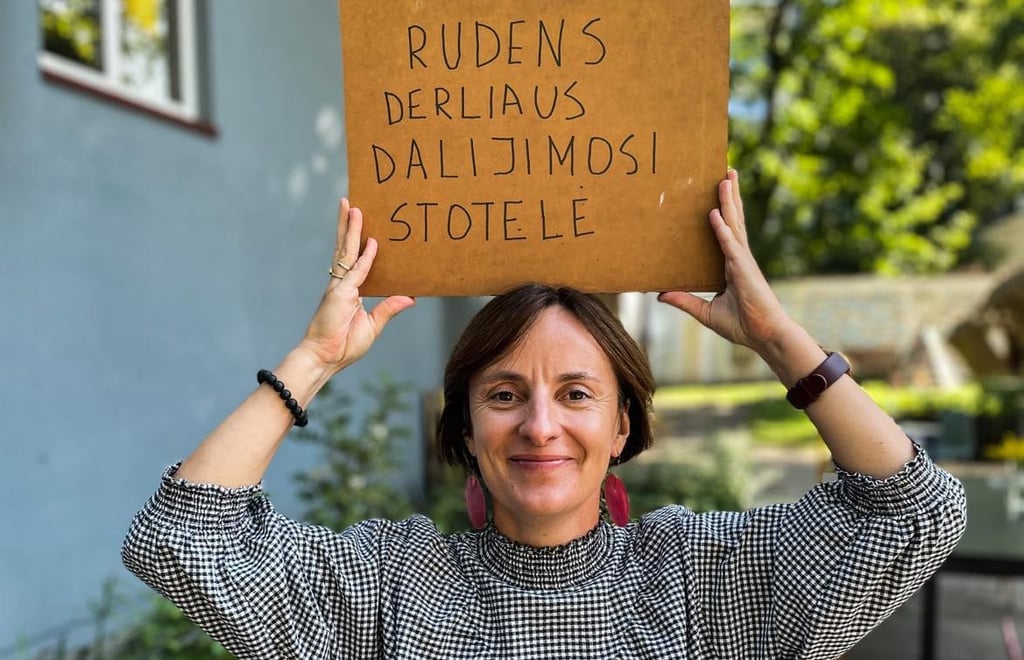 RUDENS
DERLIAUS
DALIJIMOSI
STOTELĖ